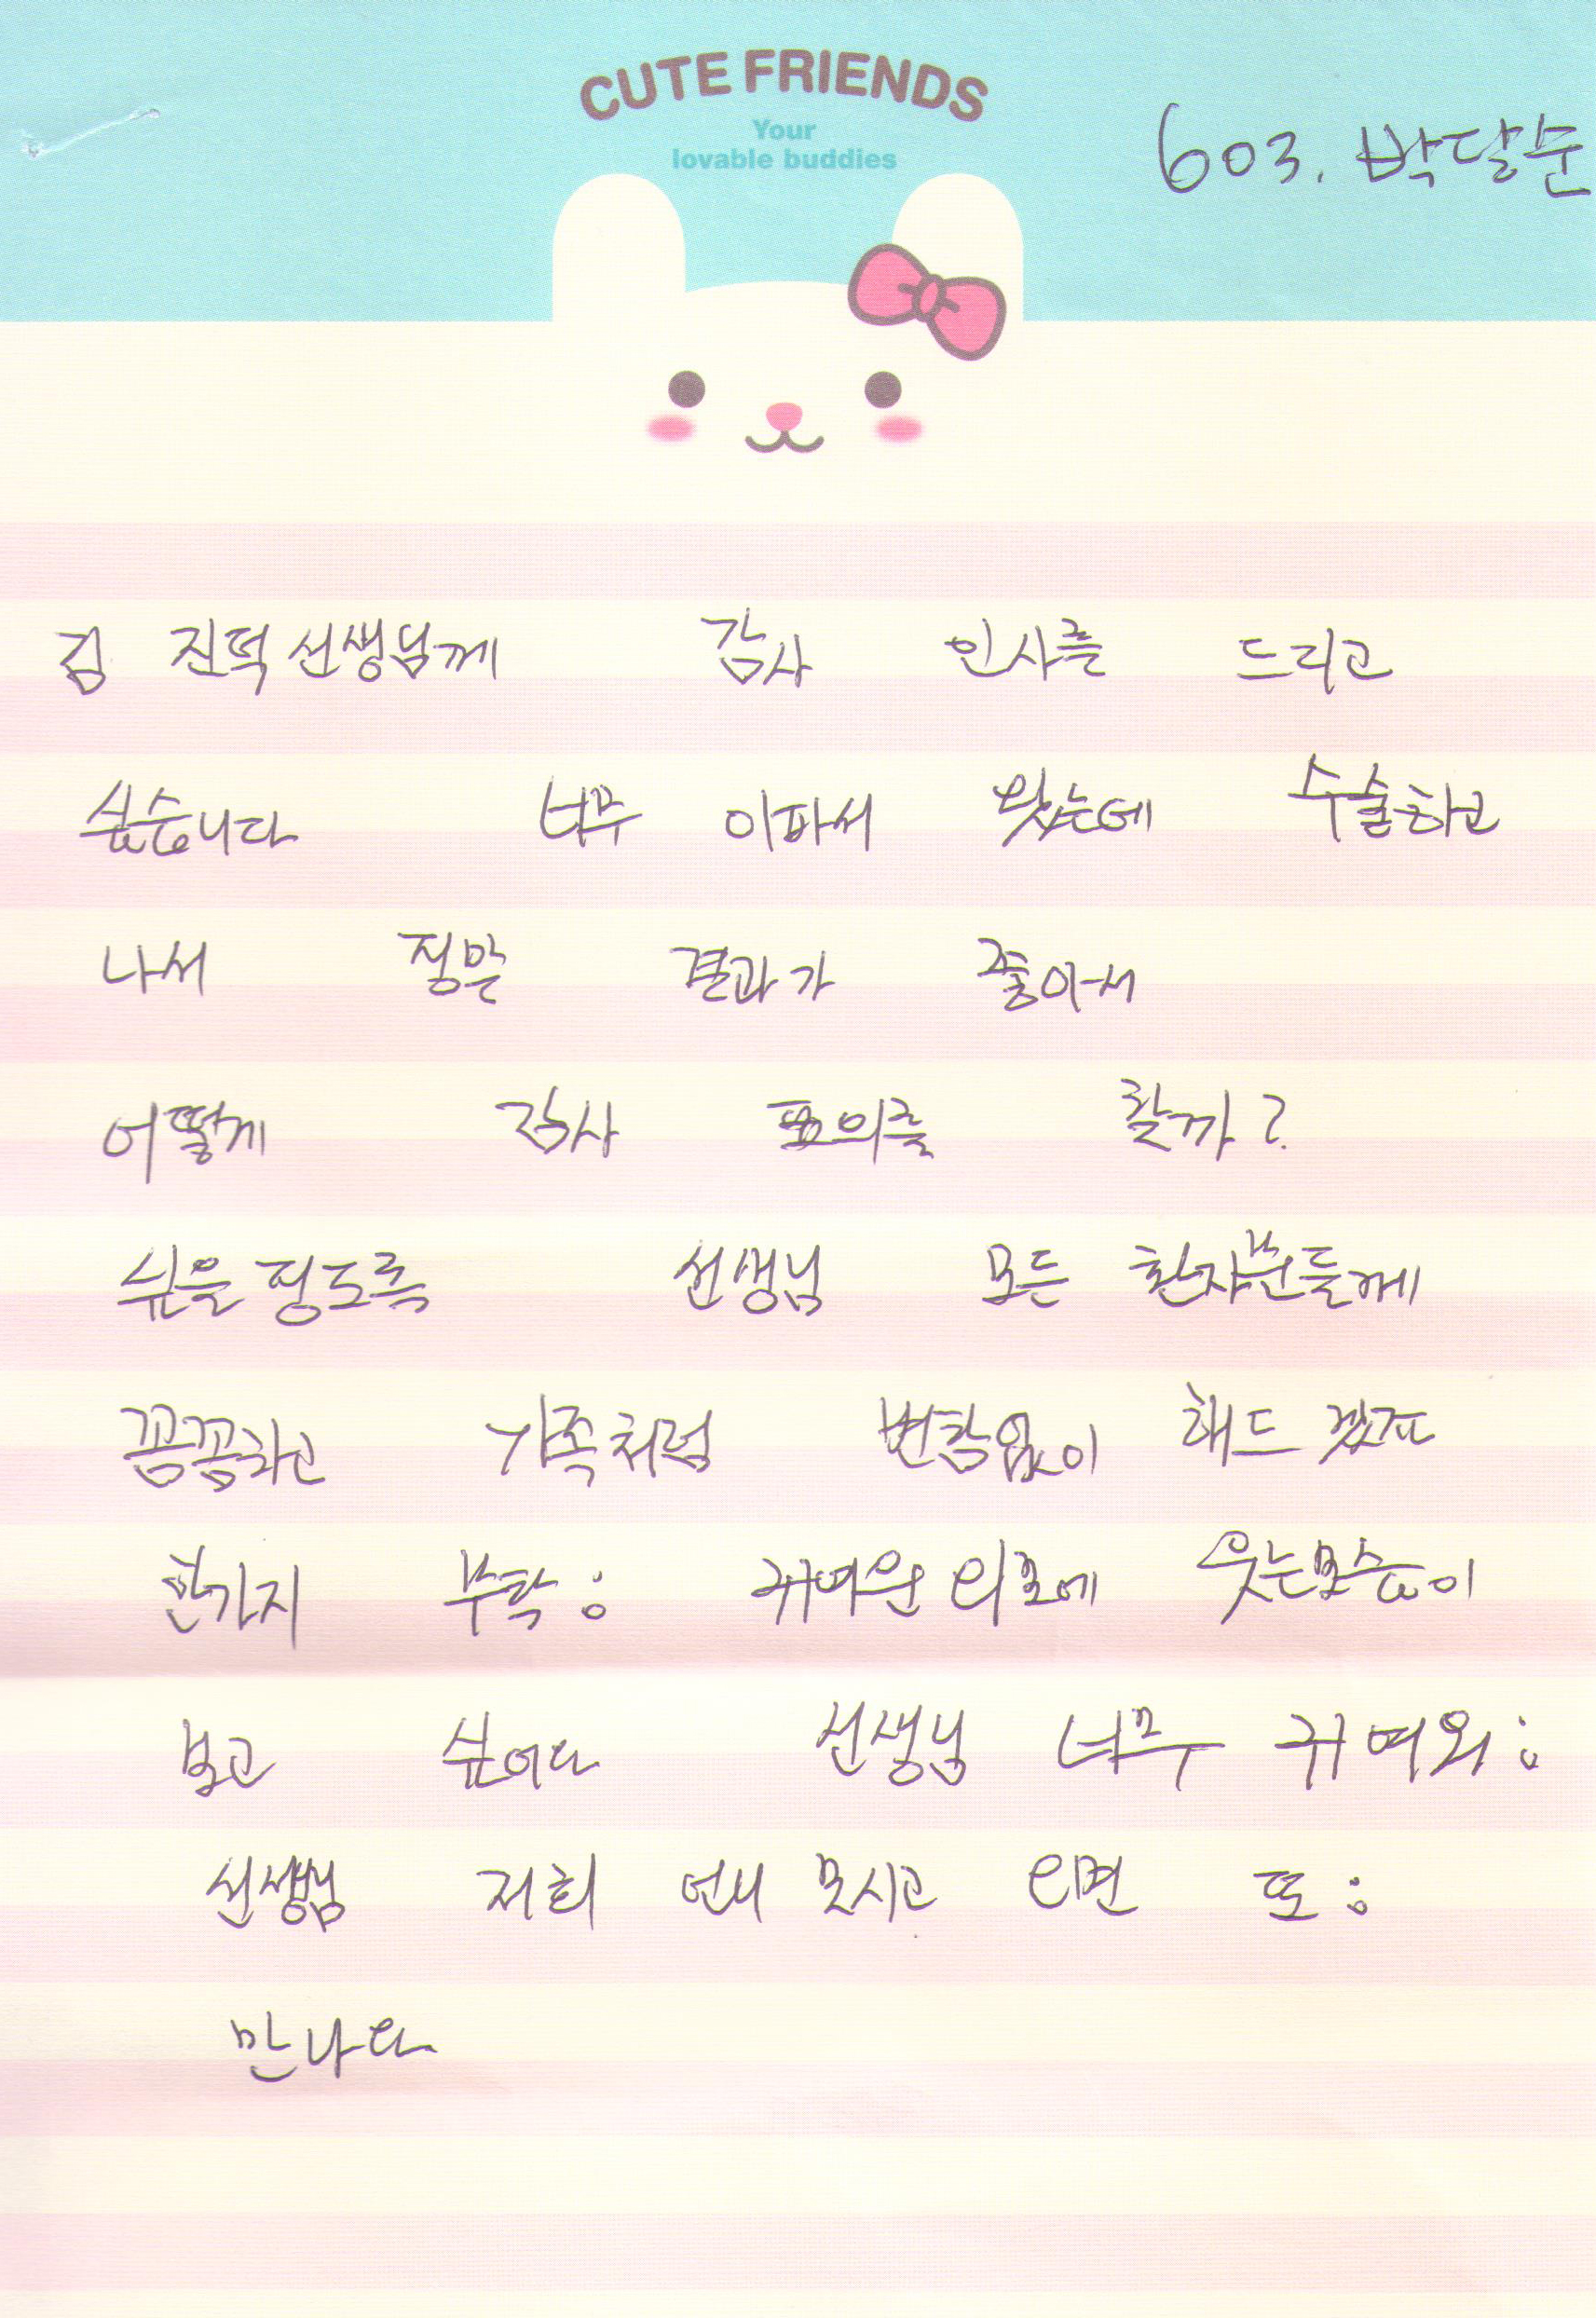 CUTE FRIENDS
Your
lovable buddies
603. 박달순
김 진덕 선생님께 감사 인사를 드리고
싶습니다 너무 아파서 왔는데 수술하고
나서 정말 결과가 좋아서
어떻게 감사 표의를 할까?
쉬울 정도록 선생님 모든 환자분들께
꼼꼼하고 가족처럼 변함없이 해드
한가지 부탁: 귀여운 외모에 웃는모습이
보고 싶어다 선생님 너무 귀여워:
선생님 저희 언니 모시고 오면 또:
만나다